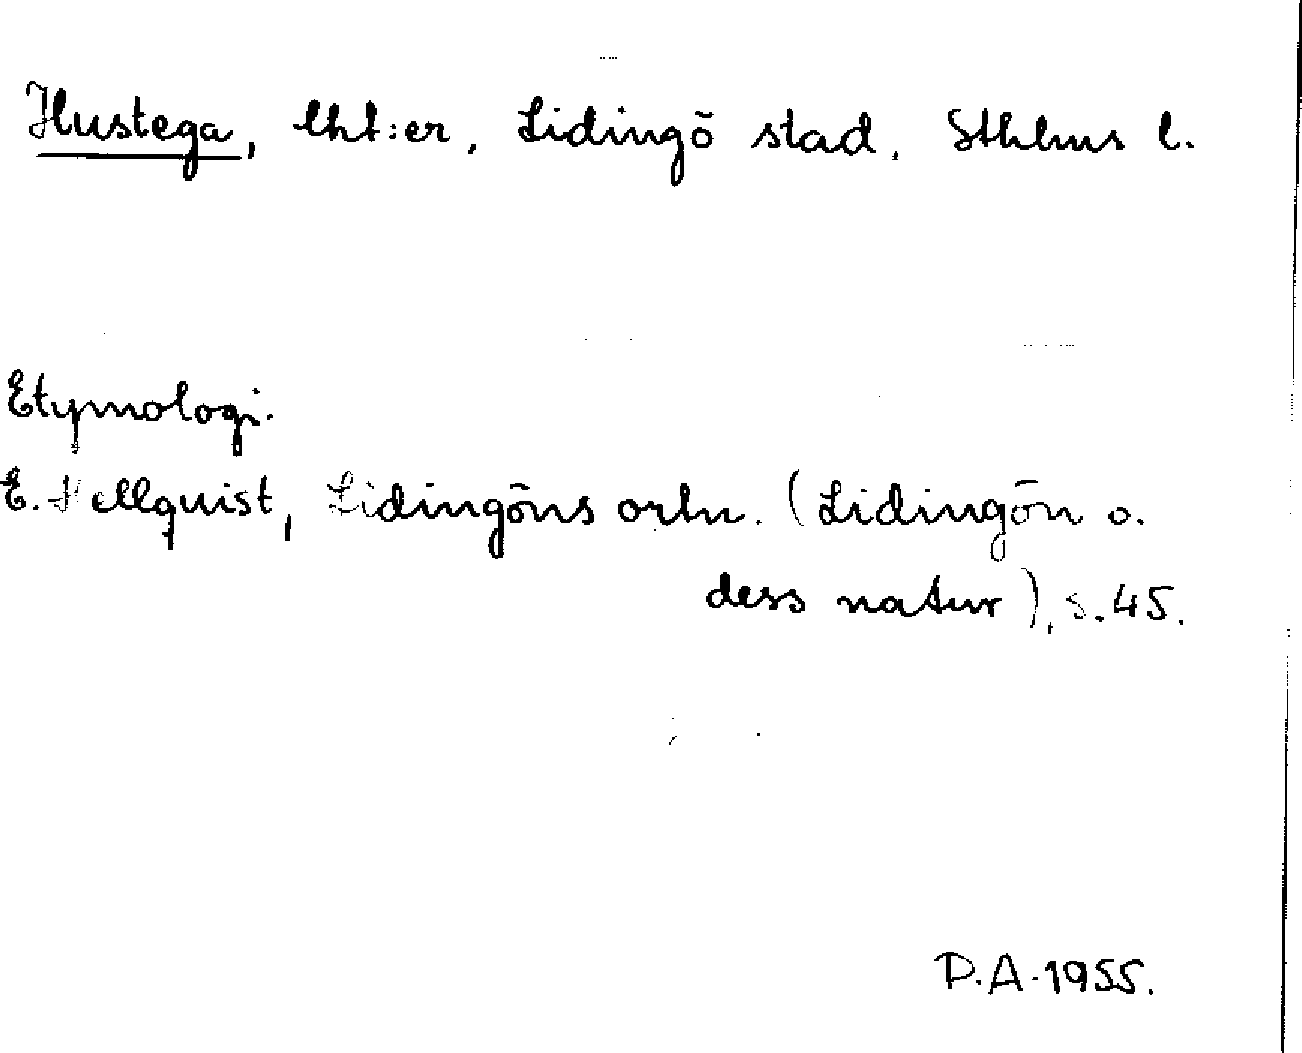 Hustega, lht:er, Lidingö stad, Sthlms l.
Etymologi.
E. Hellquist, Lidingöns ortn. (Lidingön o.
dess natur), s. 45.
P.A. 1955.